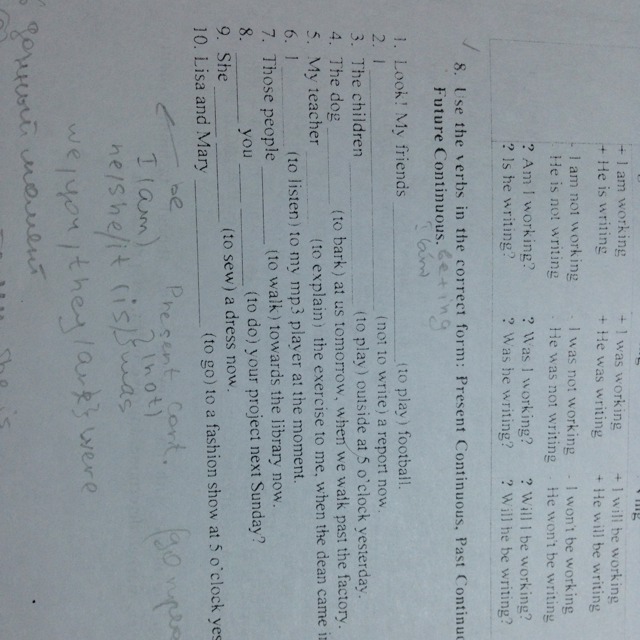 + I am working + I was working + I will be working
+ He is writing + He was writing + He will be writing
- I am not working - I was not working - I won't be working
- He is not writing - He was not writing - He won't be writing
? Am I working? ? Was I working? ? Will I be working?
? Is he writing? ? Was he writing? ? Will he be writing?
8. Use the verbs in the correct form: Present Continuous, Past Continuous
Future Continuous.
1. Look! My friends ____ (to play) football.
2. I ____ (not to write) a report now.
3. The children ____ (to play) outside at 5 o'clock yesterday.
4. The dog ____ (to bark) at us tomorrow, when we walk past the factory.
5. My teacher ____ (to explain) the exercise to me, when the dean came
6. I ____ (to listen) to my mp3 player at the moment.
7. Those people ____ (to walk) towards the library now.
8. ____ you ____ (to do) your project next Sunday?
9. She ____ (to sew) a dress now.
10. Lisa and Mary ____ (to go) to a fashion show at 5 o'clock yes
be Present Cont.
I (am) (not)
he/she/it (is) was
we/you/they were
момент